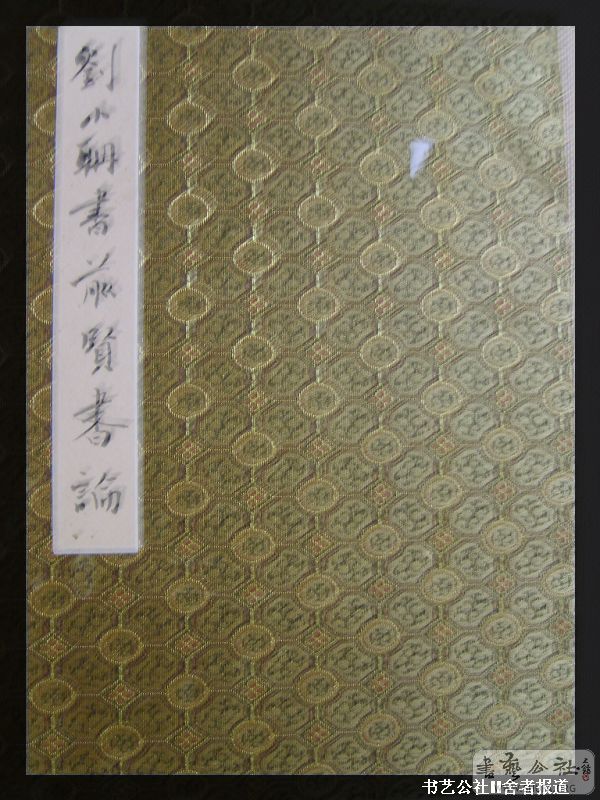 劉小書前賢書論
書藝公社
书艺公社II舍者报道